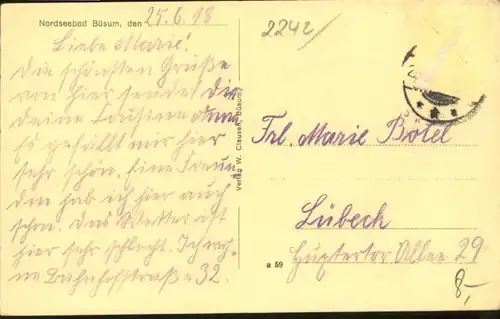 Nordseebad Büsum, den 25.6.18
Liebe Marie!
Die schönsten Grüße
von hier sendet Dir
deine Cousine Anni
Es gefällt mir hier
sehr schön. Eine Freun-
din hab ich hier auch
schon. Das Wetter ist
hier sehr schlecht. Ich woh-
ne Bahnhofstraße 32.
Verlag W. Clausen, Büsum
2242
Frl. Marie Botel
Lübeck
Huptertor Allee 29
a 59
8,-